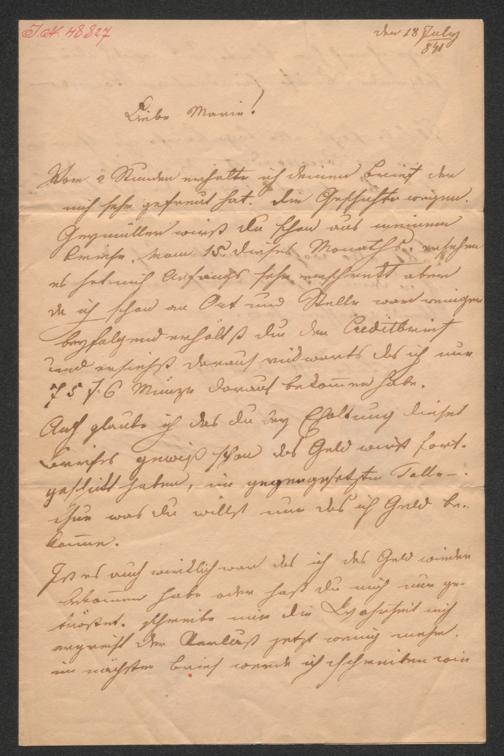 I.N. 48827
den 18 July
841
Liebe Marie!
Vor 2 Stunden erhalte ich deinen Brief der
mich sehr gefreut hat. Die Geschichte wegen
Geymüller wirst du schon aus meinem
Briefe vom 15 dieses Monaths ersehen
es hat mich Anfangs sehr erschreckt aber
da ich schon an Ort und Stelle war weniger
beyfolgend erhältst du den Creditbrief
und ersiehst daraus rückwärts das ich nur
75 f 6 Münze darauf bekommen habe.
Auch glaube ich das du bey Erhaltung dieses
Briefes gewiß schon das Geld wirst fort-
geschickt haben, im gegengesetzten Falle
thue was du willst nur das ich Geld be-
komme.
Ist es auch wirklich war das ich das Geld wieder
bekommen habe oder hast du mich nur ge-
tröstet. Schreibe mir die Wahrheit mich
ergreift der Verlust jetzt wenig mehr.
im nächsten Brief werde ich schreiben wie